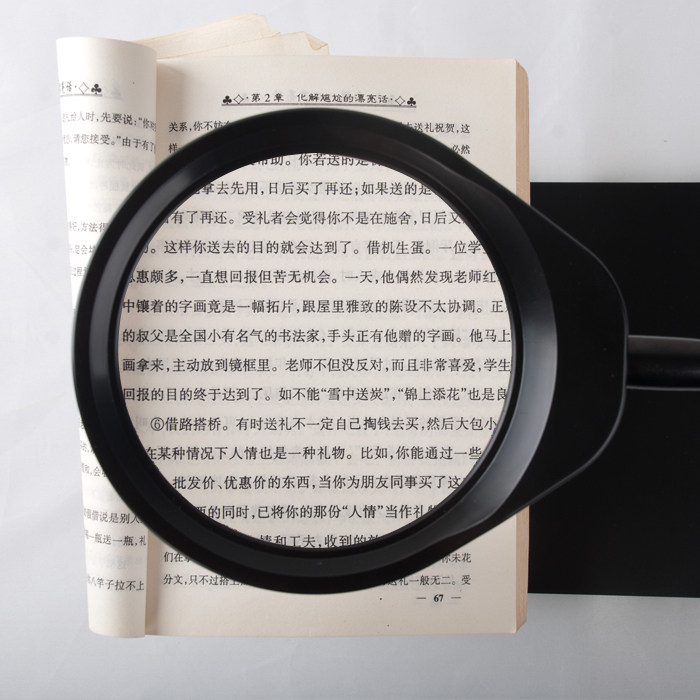 第2章 化解尴尬的漂亮话
关系,你不妨
去送礼祝贺,这
必然
帮助。你若送的是
拿去先用,日后买了再还;如果送的是
有了再还。受礼者会觉得你不是在施舍,日后又
。这样你送去的目的就会达到了。借机生蛋。一位学
恩惠颇多,一直想回报但苦无机会。一天,他偶然发现老师红
中镶着的字画竟是一幅拓片,跟屋里雅致的陈设不太协调。正
的叔父是全国小有名气的书法家,手头正有他赠的字画。他马上
画拿来,主动放到镜框里。老师不但没反对,而且非常喜爱,学生
回报的目的终于达到了。如不能“雪中送炭”,“锦上添花”也是良
⑥借路搭桥。有时送礼不一定自己掏钱去买,然后大包小
在某种情况下人情也是一种礼物。比如,你能通过一些
批发价、优惠价的东西,当你为朋友同事买了这
的同时,已将你的那份“人情”当作礼
情和工夫,收到的
们在
你未花
分文,只不过搭上
送礼一般无二。受
— 67 —
给人时,先要说:“你
请您接受。”由于有了
方法很
借说是别人
一瓶送一瓶,礼
八竿子拉不上